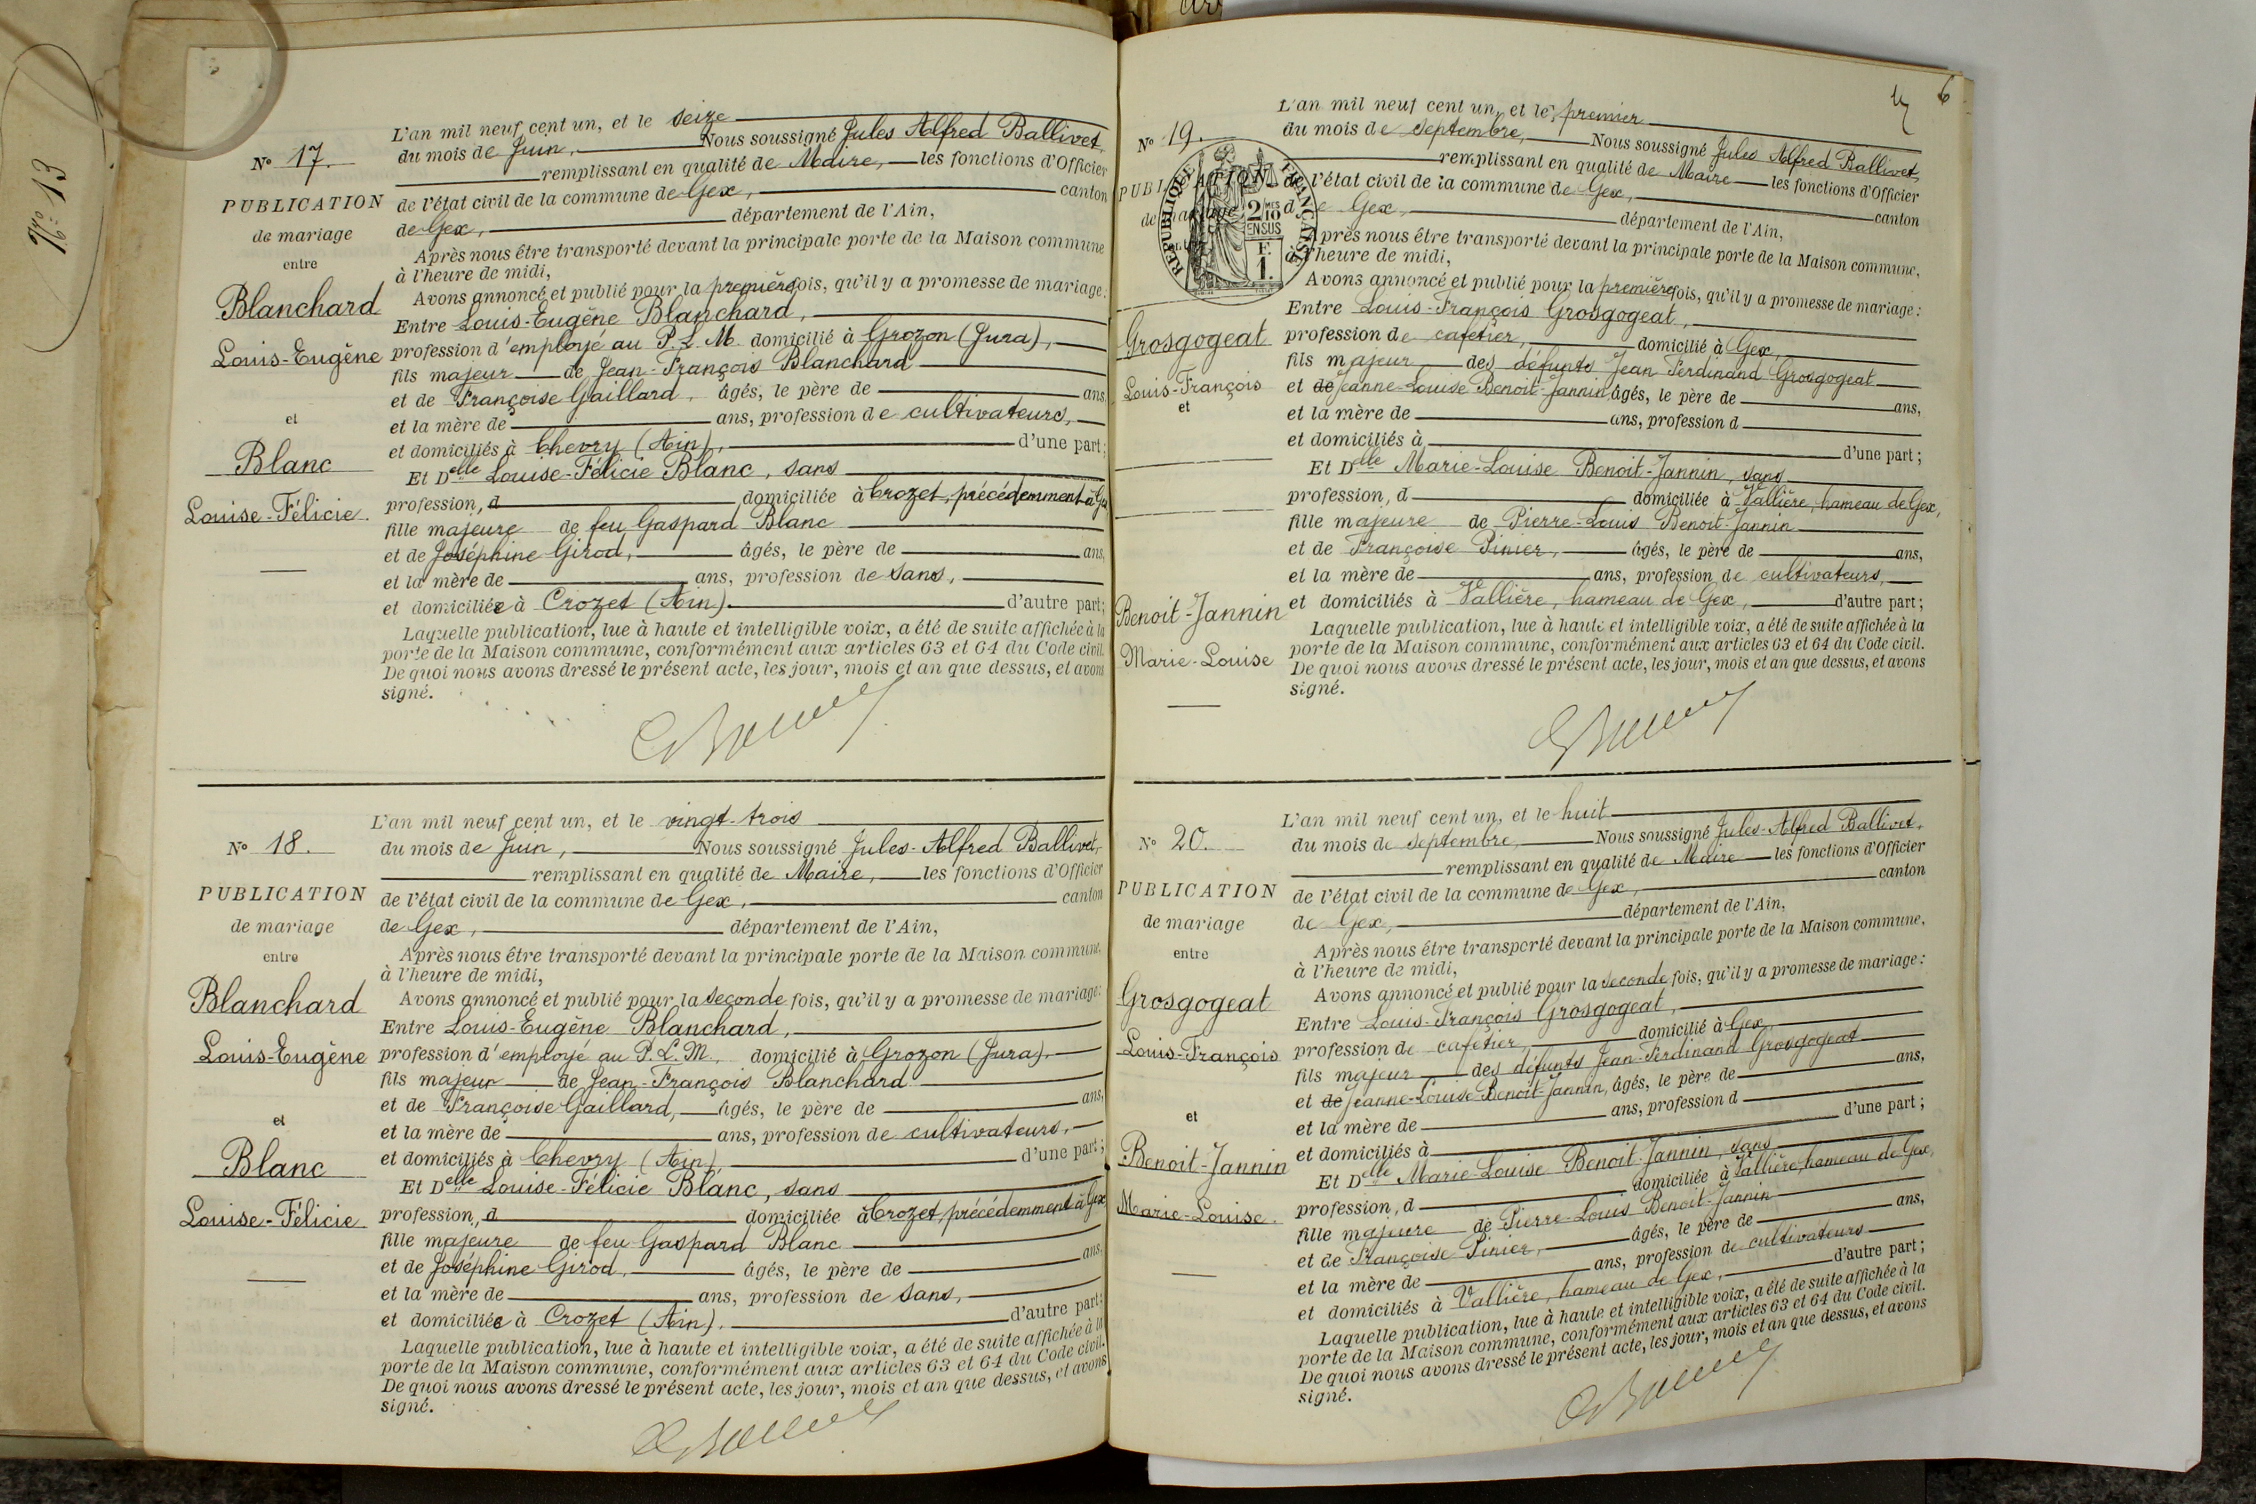 No 13
N° 17.
PUBLICATION
de mariage
entre
Blanchard
Louis-Eugène
et
Blanc
Louise-Félicie.
L'an mil neuf cent un, et le seize
du mois de Juin, Nous soussigné Jules Alfred Ballivet,
remplissant en qualité de Maire, les fonctions d'Officier
de l'état civil de la commune de Gex, canton
de Gex, département de l'Ain,
Après nous être transporté devant la principale porte de la Maison commune
à l'heure de midi,
Avons annoncé et publié pour la première fois, qu'il y a promesse de mariage:
Entre Louis-Eugène Blanchard,
profession d'employé au P. L. M. domicilié à Grozon (Jura),
fils majeur de Jean-François Blanchard
et de Françoise Gaillard, âgés, le père de ans,
et la mère de ans, profession de cultivateurs,
et domiciliés à Chevry (Ain), d'une part;
Et Delle Louise-Félicie Blanc, sans
profession, d domiciliée à Crozet, précédemment à Gex
fille majeure de feu Gaspard Blanc
et de Joséphine Girod, âgés, le père de ans,
et la mère de ans, profession de sans,
et domiciliée à Crozet (Ain). d'autre part;
Laquelle publication, lue à haute et intelligible voix, a été de suite affichée à la
porte de la Maison commune, conformément aux articles 63 et 64 du Code civil.
De quoi nous avons dressé le présent acte, les jour, mois et an que dessus, et avons
signé.
N° 18.
PUBLICATION
de mariage
entre
Blanchard
Louis-Eugène
et
Blanc
Louise-Félicie
L'an mil neuf cent un, et le vingt-trois
du mois de Juin, Nous soussigné Jules-Alfred Ballivet,
remplissant en qualité de Maire, les fonctions d'Officier
de l'état civil de la commune de Gex, canton
de Gex, département de l'Ain,
Après nous être transporté devant la principale porte de la Maison commune.
à l'heure de midi,
Avons annoncé et publié pour la seconde fois, qu'il y a promesse de mariage:
Entre Louis-Eugène Blanchard,
profession d'employé au P. L. M., domicilié à Grozon (Jura),
fils majeur de Jean-François Blanchard
et de Françoise Gaillard, âgés, le père de ans,
et la mère de ans, profession de cultivateurs,
et domiciliés à Chevry (Ain), d'une part;
Et Delle Louise-Félicie Blanc, sans
profession, d domiciliée à Crozet, précédemment à Gex
fille majeure de feu Gaspard Blanc
et de Joséphine Girod, âgés, le père de ans,
et la mère de ans, profession de sans,
et domiciliée à Crozet (Ain). d'autre part;
Laquelle publication, lue à haute et intelligible voix, a été de suite affichée à la
porte de la Maison commune, conformément aux articles 63 et 64 du Code civil.
De quoi nous avons dressé le présent acte, les jour, mois et an que dessus, et avons
signé.
6
N° 19.
PUBLICATION
de mariage
RÉPUBLIQUE FRANÇAISE
2/10 MES
EN SUS
F.
1.
Grosgogeat
Louis-François
et
Benoit-Jannin
Marie-Louise
L'an mil neuf cent un, et le premier
du mois de septembre, Nous soussigné Jules Alfred Ballivet,
remplissant en qualité de Maire les fonctions d'Officier
de l'état civil de la commune de Gex, canton
de Gex, département de l'Ain,
Après nous être transporté devant la principale porte de la Maison commune,
à l'heure de midi,
Avons annoncé et publié pour la première fois, qu'il y a promesse de mariage:
Entre Louis-François Grosgogeat,
profession de cafetier, domicilié à Gex,
fils majeur des défunts Jean Ferdinand Grosgogeat
et de Jeanne-Louise Benoit-Jannin âgés, le père de ans,
et la mère de ans, profession d
et domiciliés à d'une part;
Et Delle Marie-Louise Benoit-Jannin, sans
profession, d domiciliée à Vallière, hameau de Gex,
fille majeure de Pierre-Louis Benoit-Jannin
et de Françoise Pinier, âgés, le père de ans,
et la mère de ans, profession de cultivateurs,
et domiciliés à Vallière, hameau de Gex, d'autre part;
Laquelle publication, lue à haute et intelligible voix, a été de suite affichée à la
porte de la Maison commune, conformément aux articles 63 et 64 du Code civil.
De quoi nous avons dressé le présent acte, les jour, mois et an que dessus, et avons
signé.
N° 20.
PUBLICATION
de mariage
entre
Grosgogeat
Louis-François
et
Benoit-Jannin
Marie-Louise.
L'an mil neuf cent un, et le huit
du mois de septembre, Nous soussigné Jules-Alfred Ballivet,
remplissant en qualité de Maire les fonctions d'Officier
de l'état civil de la commune de Gex, canton
de Gex, département de l'Ain,
Après nous être transporté devant la principale porte de la Maison commune,
à l'heure de midi,
Avons annoncé et publié pour la seconde fois, qu'il y a promesse de mariage:
Entre Louis-François Grosgogeat,
profession de cafetier, domicilié à Gex,
fils majeur des défunts Jean-Ferdinand Grosgogeat
et de Jeanne-Louise Benoit-Jannin, âgés, le père de ans,
et la mère de ans, profession d
et domiciliés à d'une part;
Et Delle Marie-Louise Benoit-Jannin, sans
profession, d domiciliée à Vallière, hameau de Gex,
fille majeure de Pierre-Louis Benoit-Jannin
et de Françoise Pinier, âgés, le père de ans,
et la mère de ans, profession de cultivateurs
et domiciliés à Vallière, hameau de Gex, d'autre part;
Laquelle publication, lue à haute et intelligible voix, a été de suite affichée à la
porte de la Maison commune, conformément aux articles 63 et 64 du Code civil.
De quoi nous avons dressé le présent acte, les jour, mois et an que dessus, et avons
signé.